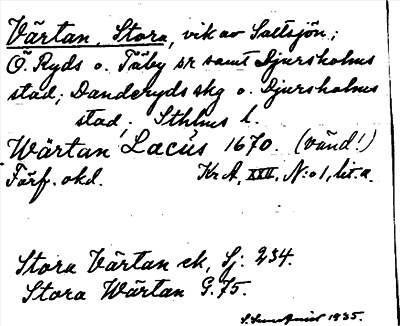 Värtan, Stora, vik av Saltsjön;
Ö. Ryds o. Täby sr samt Djursholms
stad; Danderyds skg o. Djursholms
stad, Sthlms l.
Wärtan Lacus 1670. (vänd!)
Förf. okd. Kr A, XXV, N:o 1, lit. a.
Stora Värtan ek, Sj: 234.
Stora Wärtan G. 75.
1935.